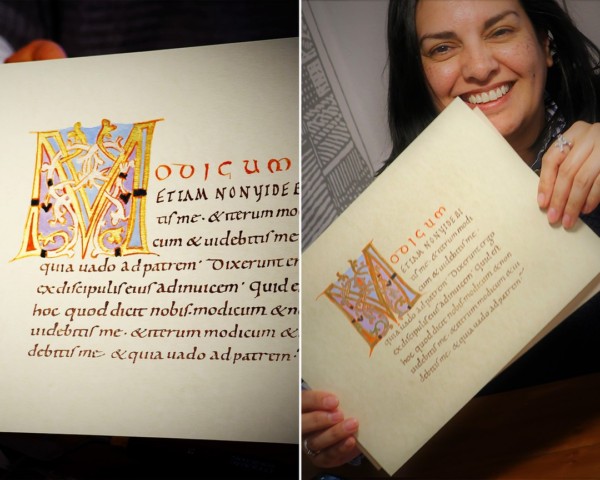 MODICUM
ETIAM NONVIDEB
tis me · & iterum mo
cum & uidebitis me
quia uado ad patrem · Dixerunt er
ex discipulis eius ad inuicem · Quid e
hoc quod dicit nobis · modicum & n
uidebitis me · & iterum modicum &
debitis me · & quia uado ad patrem ·
MODICUM
ETIAM NONVIDEBI
tis me · & iterum modi
cum & uidebitis me ·
quia uado ad patrem · Dixerunt ergo
ex discipulis eius ad inuicem · Quid est
hoc quod dicit nobis modicum & non
uidebitis me · & iterum modicum & ui
debitis me · & quia uado ad patrem ·